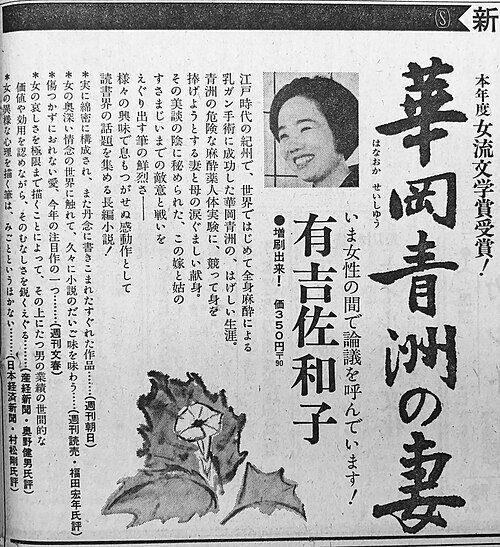 新
Ⓢ
本年度女流文学賞受賞！
華岡青洲の妻
はなおか せいしゆう
いま女性の間で論議を呼んでいます！
有吉佐和子
●増刷出来！ 価350円〒90
江戸時代の紀州で、世界ではじめて全身麻酔による
乳ガン手術に成功した華岡青洲の、はげしい生涯。
青洲の危険な麻酔薬人体実験に、競って身を
捧げようとする妻と母の涙ぐましい献身。
その美談の陰に秘められた、この嫁と姑の
すさまじいまでの敵意と戦いを
えぐり出す筆の鮮烈さ――
様々の興味で息もつがせぬ感動作として
読書界の話題を集める長編小説！
＊実に綿密に構成され、また丹念に書きこまれたすぐれた作品……（週刊朝日）
＊女の奥深い情念の世界に触れて、久々に小説のだいご味を味わう……（週刊読売・福田宏年氏評）
＊傷つかずにおれない愛、今年の注目作の一つ……（週刊文春）
＊女の哀しさを極限まで描くことによって、その上にたつ男の業績の世間的な
価値や効用を認めながら、そのむなしさを鋭くえぐる……（産経新聞・奥野健男氏評）
＊女の異様な心理を描く筆は、みごとというほかない……（日本経済新聞・村松剛氏評）